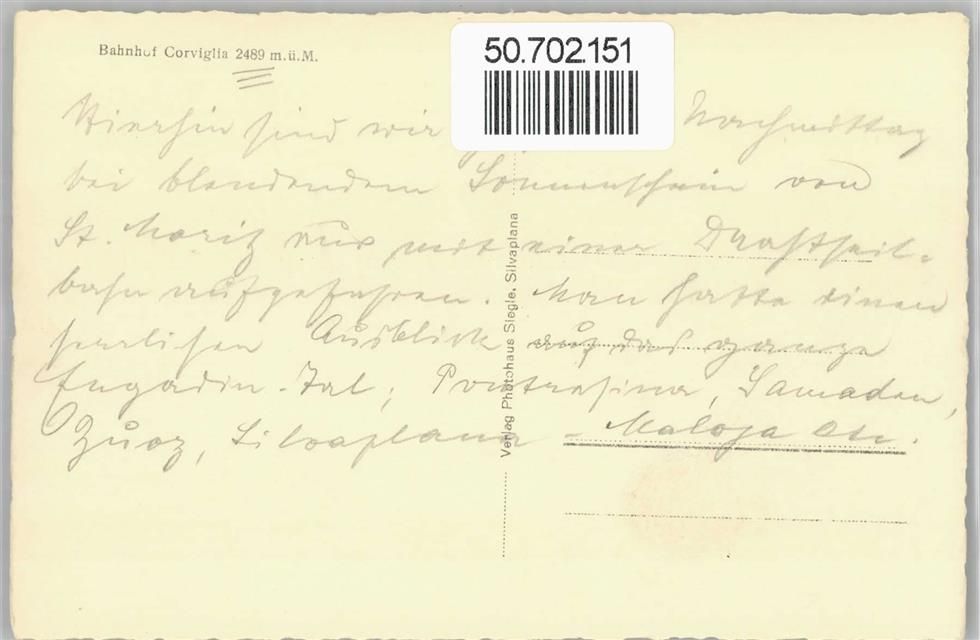 Bahnhof Corviglia 2489 m.ü.M.
50.702.151
Hierhin sind wir Nachmittag
bei blendendem Sonnenschein von
St. Moritz aus mit einer Drahtseil-
bahn aufgefahren. Man hatte einen
herrlichen Ausblick auf das ganze
Engadin-Tal, Pontresina, Samaden,
Zuoz, Silvaplana - Maloja etc.
Verlag Photohaus Siegle, Silvaplana